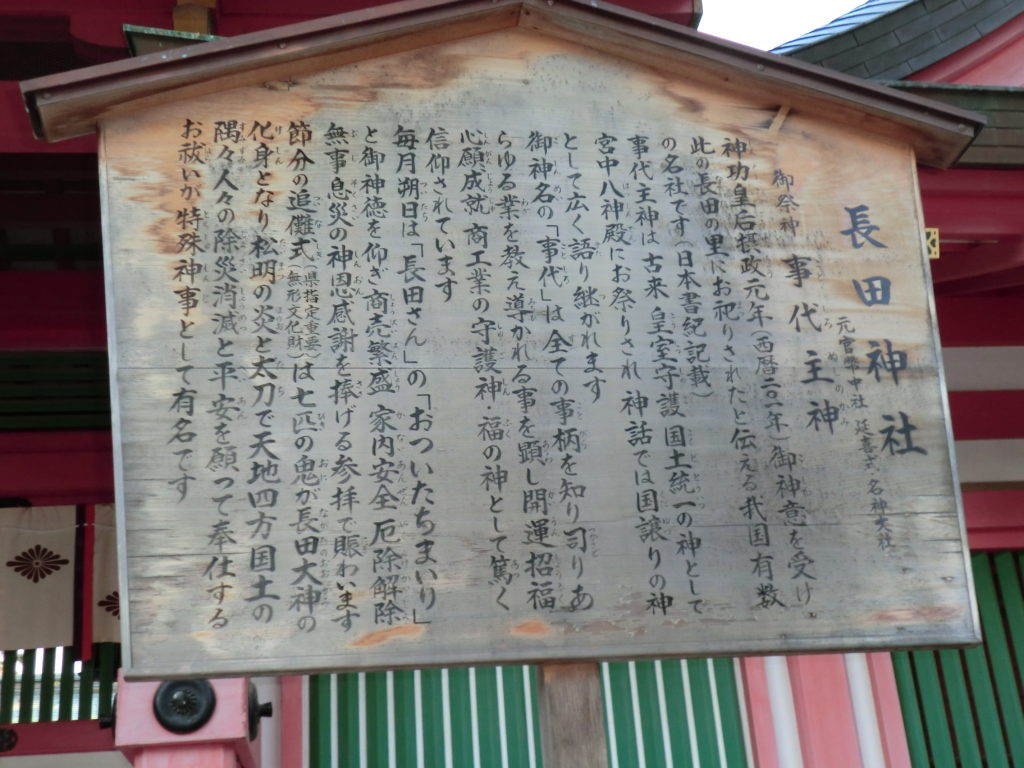 長田神社
元官幣中社 延喜式名神大社
御祭神 事代主神
神功皇后摂政元年(西暦二〇一年)御神意を受け
此の長田の里にお祀りされたと伝える我国有数
の名社です(日本書紀記載)
事代主神は 古来 皇室守護 国土統一の神として
宮中八神殿にお祭りされ 神話では国譲りの神
として広く語り継がれます
御神名の「事代」は 全ての事柄を知り司り あ
らゆる業を教え導かれる事を顕し 開運招福
心願成就 商工業の守護神・福の神として篤く
信仰されています
毎月朔日は「長田さん」の「おついたちまいり」
と御神徳を仰ぎ 商売繁盛 家内安全 厄除解除
無事息災の神恩感謝を捧げる参拝で賑わいます
節分の追儺式(県指定重要無形文化財)は七匹の鬼が長田大神の
化身となり 松明の炎と太刀で天地四方国土の
隅々人々の除災消滅と平安を願って奉仕する
お祓いが特殊神事として有名です